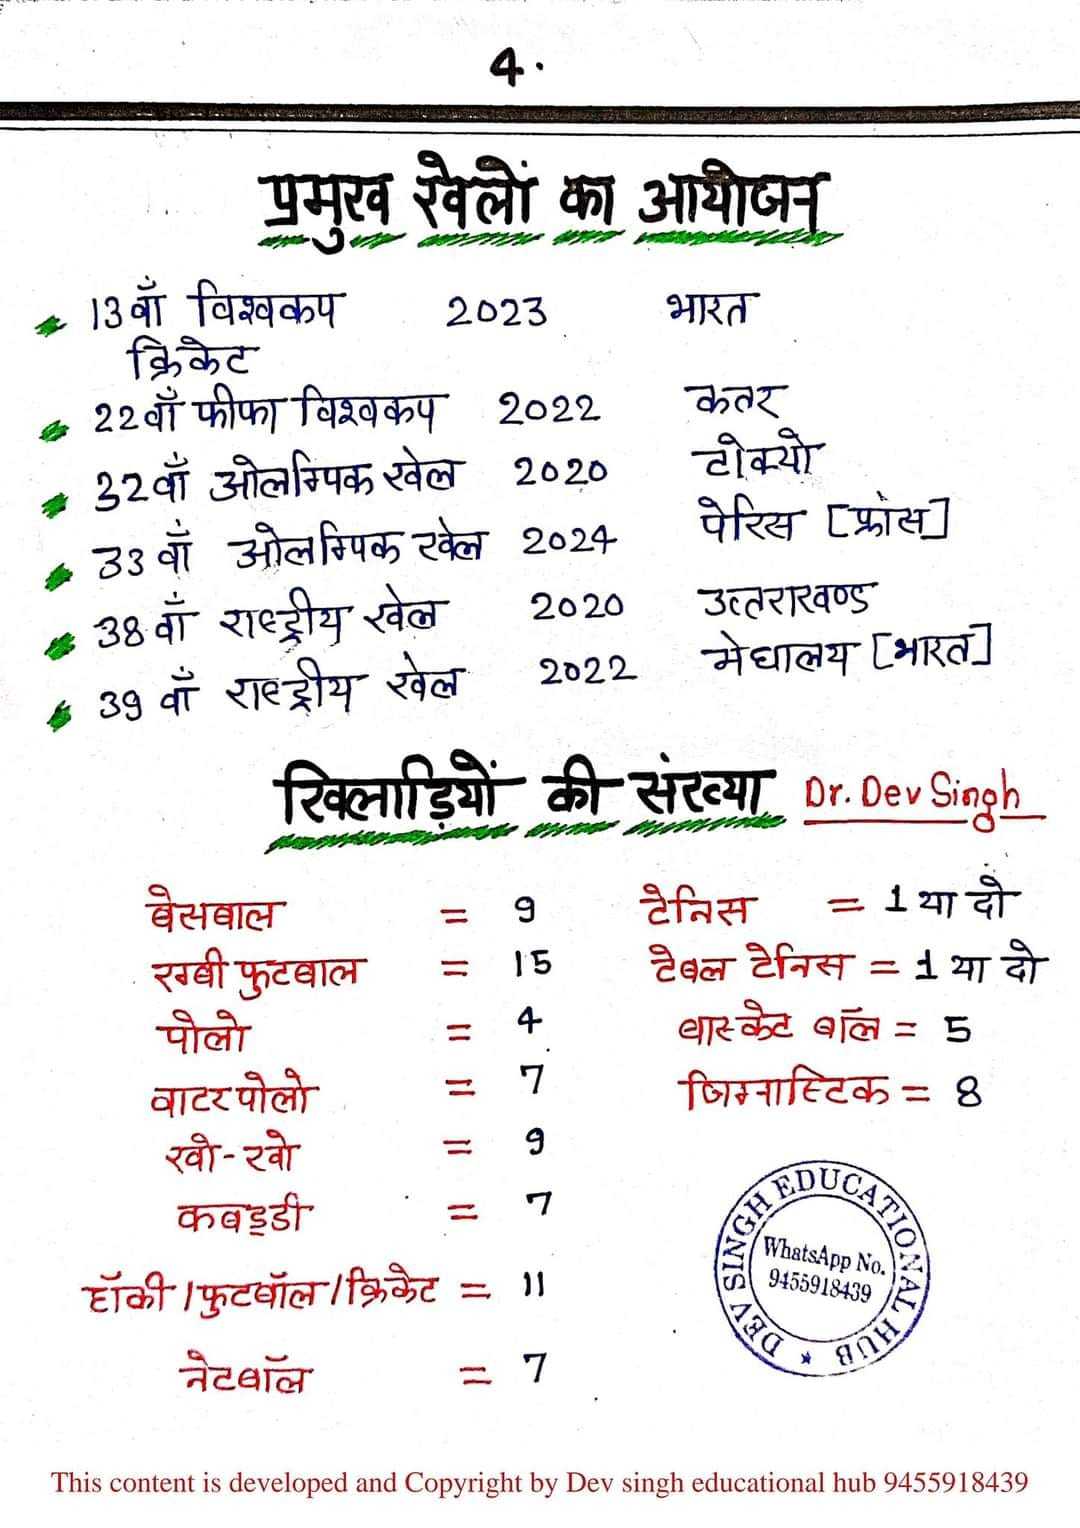 4.
प्रमुख खेलों का आयोजन
13वाँ विश्वकप 2023 भारत
क्रिकेट
22वाँ फीफा विश्वकप 2022 कतर
32वाँ ओलम्पिक खेल 2020 टोक्यो
33वाँ ओलम्पिक खेल 2024 पेरिस [फ्रांस]
38वाँ राष्ट्रीय खेल 2020 उत्तराखण्ड
39वाँ राष्ट्रीय खेल 2022 मेघालय [भारत]
खिलाड़ियों की संख्या Dr. Dev Singh
बेसबाल = 9 टेनिस = 1 या दो
रग्बी फुटबाल = 15 टेबल टेनिस = 1 या दो
पोलो = 4 बास्केट बॉल = 5
वाटर पोलो = 7 जिम्नास्टिक = 8
खो-खो = 9
कबड्डी = 7
हॉकी/फुटबॉल/क्रिकेट = 11
नेटबॉल = 7
DEV SINGH EDUCATIONAL HUB
WhatsApp No.
9455918439
This content is developed and Copyright by Dev singh educational hub 9455918439